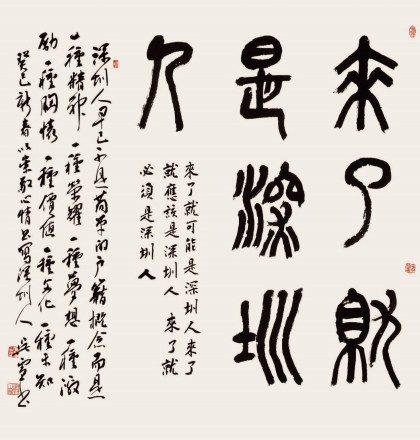 来了就
是深圳
人
來了就可能是深圳人來了
就應該是深圳人 來了就
必須是深圳人
深圳人早已不是一简單的户籍概念而是
一種精神一種榮耀一種夢想一種激
勵一種胸懷一種價值一種文化一種未知
癸巳新春以崇敬心情書寫深圳人